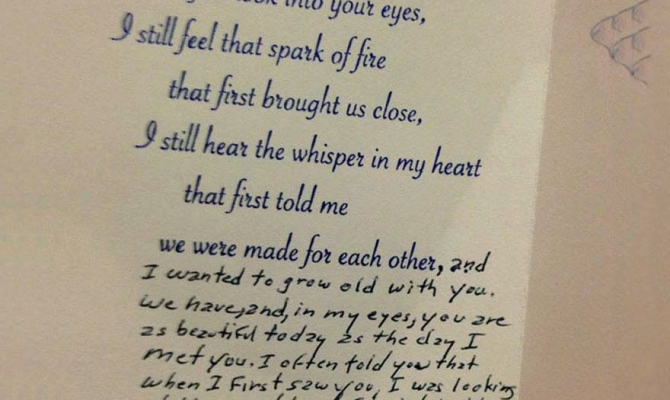 into your eyes,
I still feel that spark of fire
that first brought us close,
I still hear the whisper in my heart
that first told me
we were made for each other, and
I wanted to grow old with you.
We have, and, in my eyes, you are
as beautiful today as the day I
met you. I often told you that
when I first saw you, I was looking